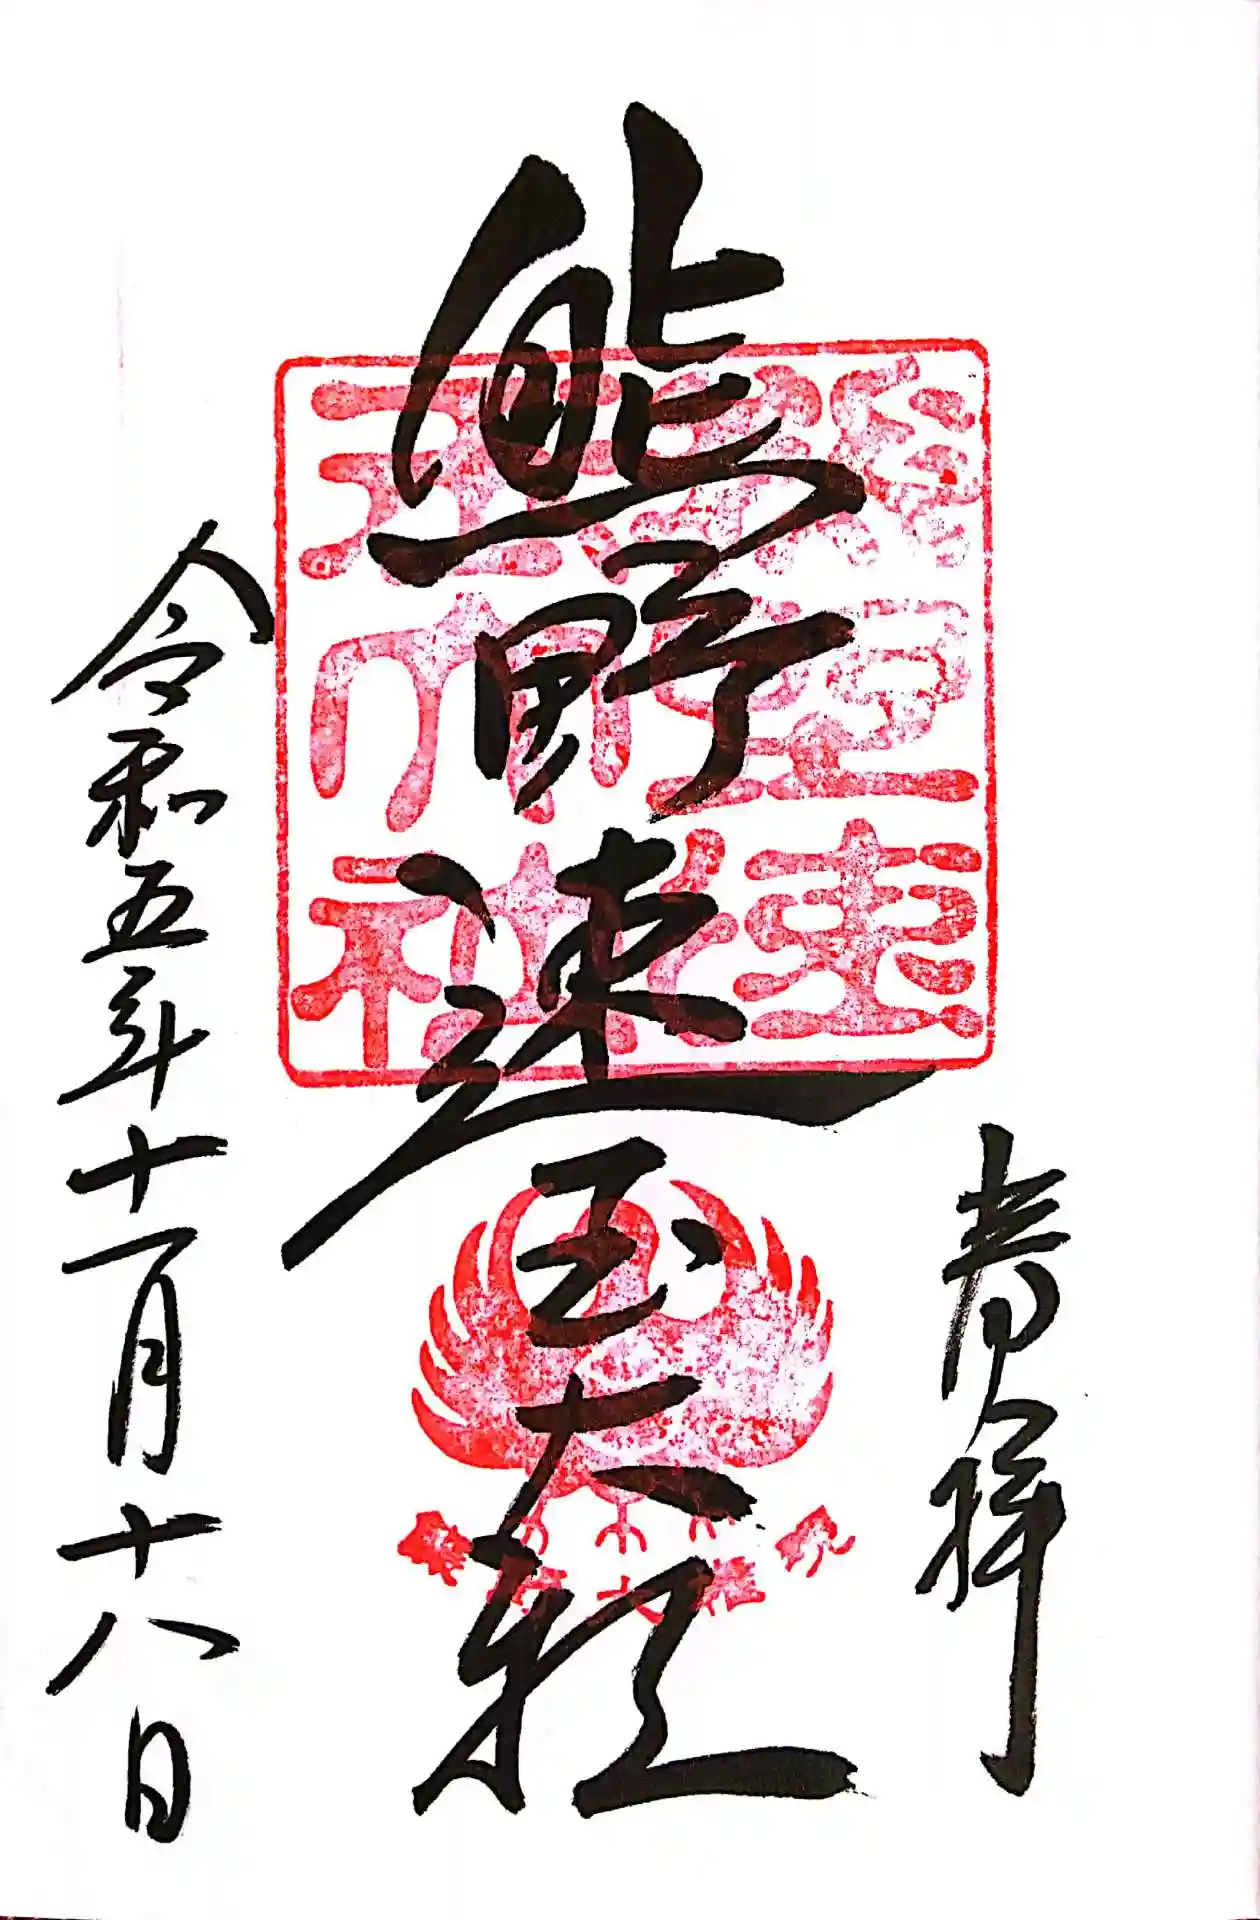 奉拝
熊野速玉大社
熊野速
玉大社
令和五年十一月十八日